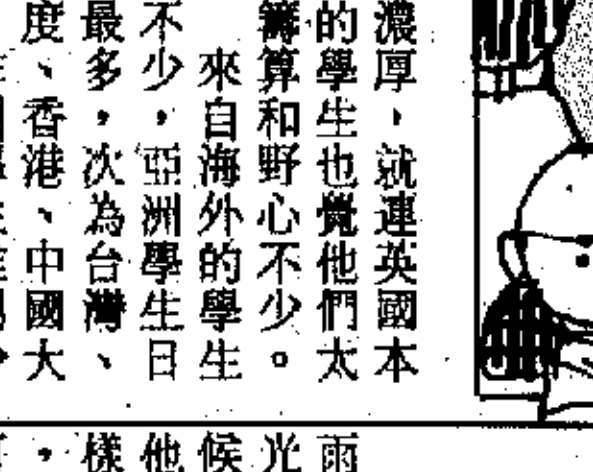 濃厚，就連英國本
的學生也覺他們太
籌算和野心不少。
來自海外的學生
不少，亞洲學生日
最多，次為台灣、
度、香港、中國大
雨
光
候
他
樣
，